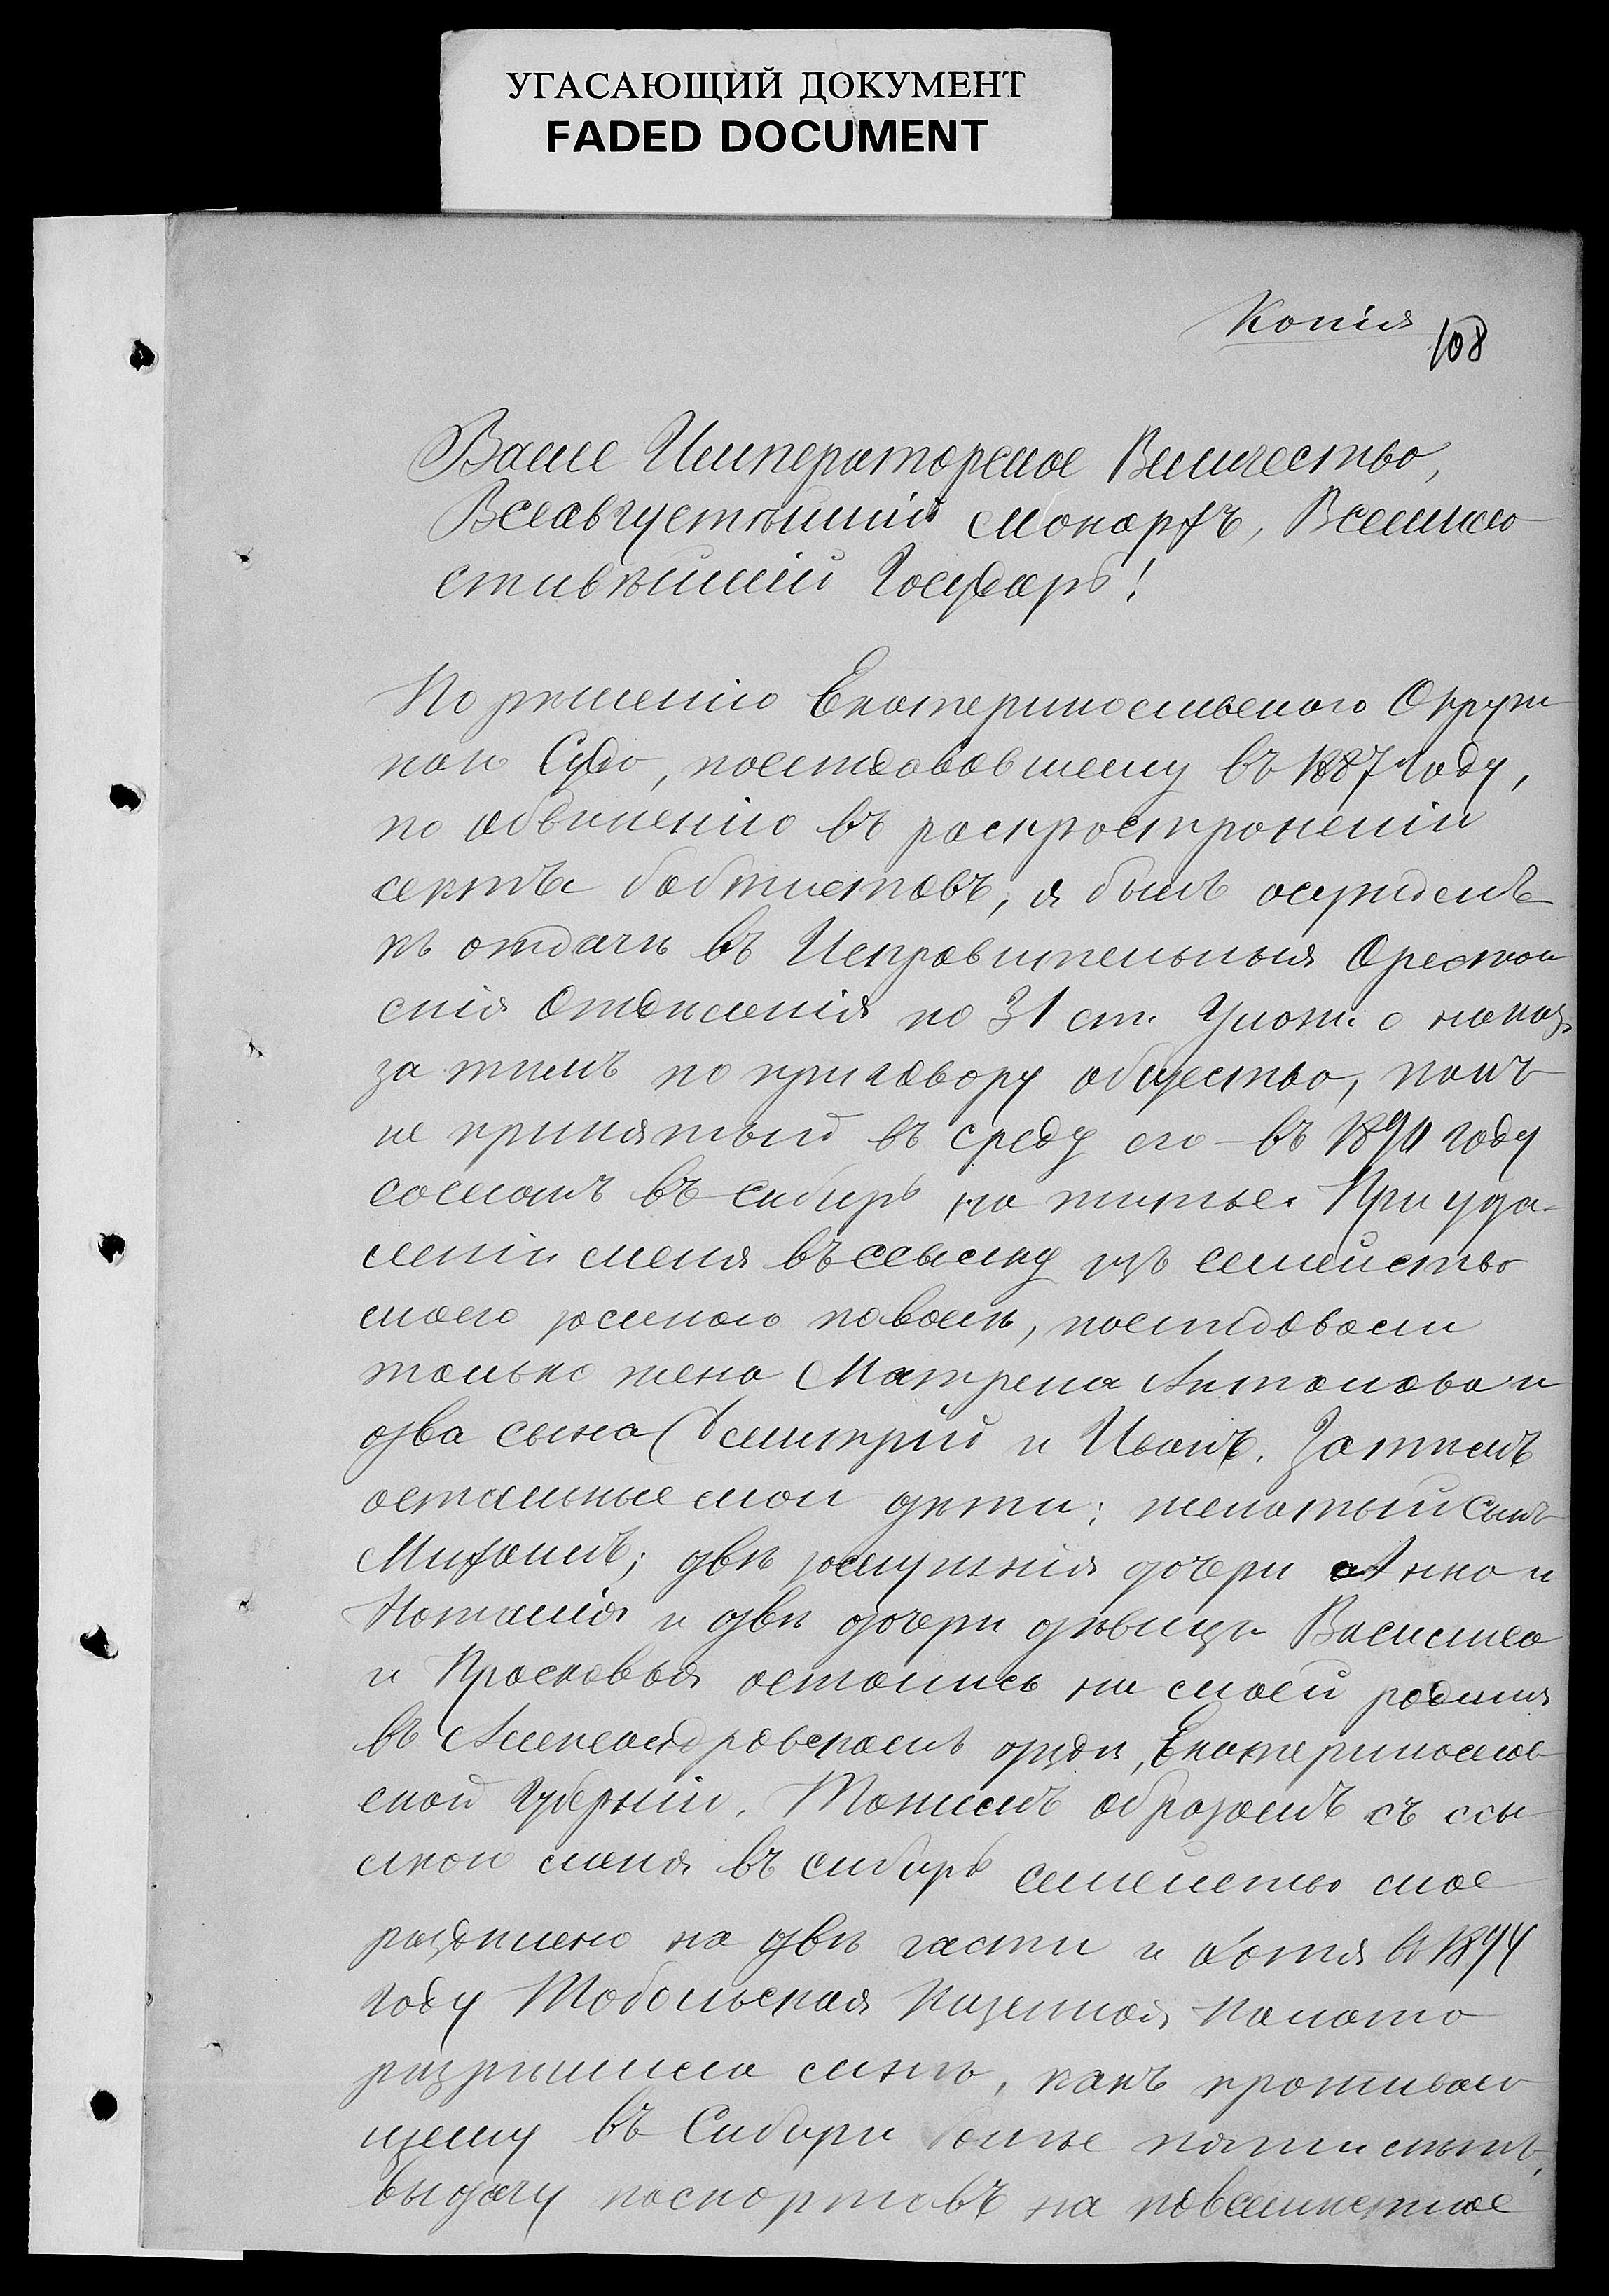 УГАСАЮЩИЙ ДОКУМЕНТ
FADED DOCUMENT
Копія
108
Ваше Императорское Величество,
Всеавгустѣйшій Монархъ, Всемило
стивѣйшій Государь!
По рѣшенію Екатеринославскаго Окруж
наго Суда, послѣдовавшему въ 1887 году,
по обвиненію въ распространеніи
секты бабтистовъ, я былъ осужденъ
къ отдачѣ въ Исправительныя Арестан
скія Отдѣленія по 31 ст. Улож. о наказ.
за тѣмъ по приговору общества, какъ
не принятый въ среду его – въ 1890 году
сосланъ въ Сибирь на житье. При уда-
леніи меня въ ссылку изъ семейства
моего за мною повсей, послѣдовали
только жена Матрена Антонова и
два сына Дмитрій и Иванъ. Затѣмъ
остальные мои дѣти: женатый сынъ
Михаилъ; двѣ замужнія дочери Анна и
Наталія и двѣ дочери дѣвицы Василиса
и Прасковья остались на моей родинѣ
въ Александровскомъ уѣздѣ, Екатеринослав
ской Губерніи. Такимъ образомъ съ ссы
лкою меня въ Сибирь семейство мое
раздѣлено на двѣ части и хотя въ 1894
году Тобольская Казенная Палата
разрѣшила мнѣ, какъ проживаю
щему въ Сибири болѣе пяти лѣтъ,
выдачу паспортовъ на повсемѣстное